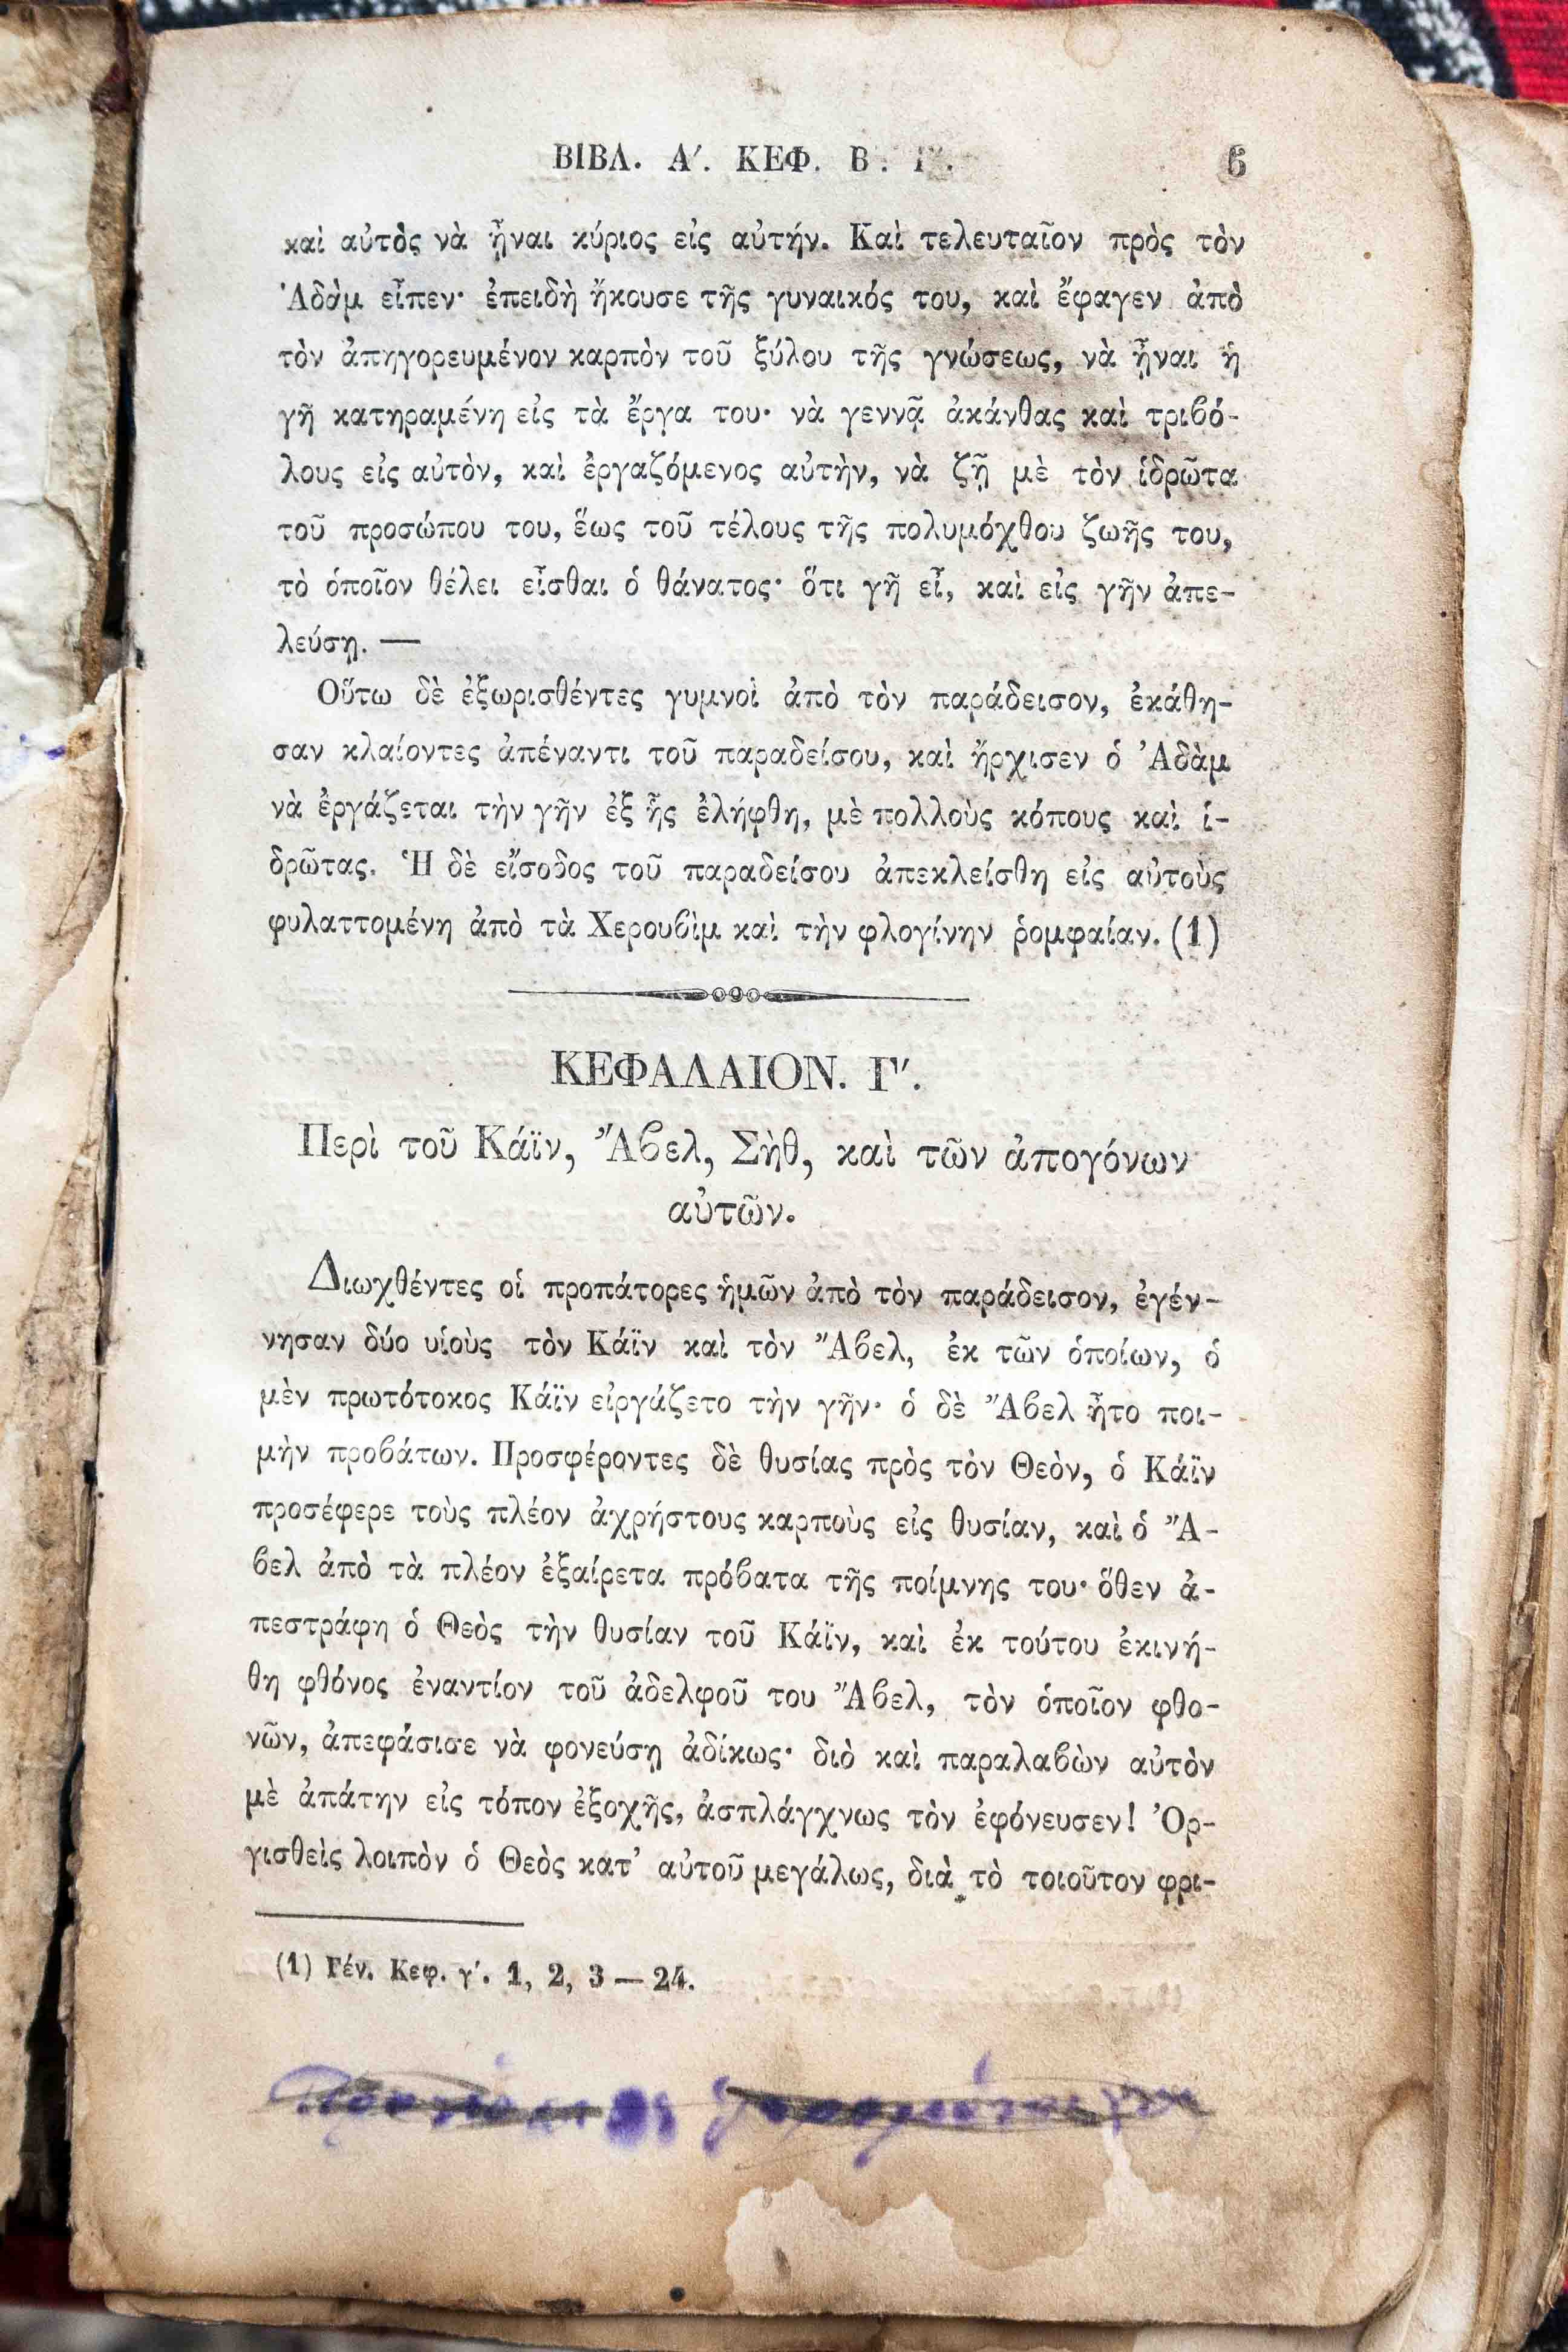 ΒΙΒΛ. Α'. ΚΕΦ. Β'. Γ'.
καὶ αὐτὸς νὰ ᾖναι κύριος εἰς αὐτήν. Καὶ τελευταῖον πρὸς τὸν
Ἀδὰμ εἶπεν· ἐπειδὴ ἤκουσε τῆς γυναικός του, καὶ ἔφαγεν ἀπὸ
τὸν ἀπηγορευμένον καρπὸν τοῦ ξύλου τῆς γνώσεως, νὰ ᾖναι ἡ
γῆ κατηραμένη εἰς τὰ ἔργα του· νὰ γεννᾷ ἀκάνθας καὶ τριβό-
λους εἰς αὐτὸν, καὶ ἐργαζόμενος αὐτὴν, νὰ ζῇ μὲ τὸν ἱδρῶτα
τοῦ προσώπου του, ἕως τοῦ τέλους τῆς πολυμόχθου ζωῆς του,
τὸ ὁποῖον θέλει εἶσθαι ὁ θάνατος· ὅτι γῆ εἶ, καὶ εἰς γῆν ἀπε-
λεύσῃ. —
Οὕτω δὲ ἐξωρισθέντες γυμνοὶ ἀπὸ τὸν παράδεισον, ἐκάθη-
σαν κλαίοντες ἀπέναντι τοῦ παραδείσου, καὶ ἤρχισεν ὁ Ἀδὰμ
νὰ ἐργάζεται τὴν γῆν ἐξ ἧς ἐλήφθη, μὲ πολλοὺς κόπους καὶ ἱ-
δρῶτας. Ἡ δὲ εἴσοδος τοῦ παραδείσου ἀπεκλείσθη εἰς αὐτοὺς
φυλαττομένη ἀπὸ τὰ Χερουβὶμ καὶ τὴν φλογίνην ῥομφαίαν. (1)
ΚΕΦΑΛΑΙΟΝ. Γ'.
Περὶ τοῦ Κάϊν, Ἄβελ, Σὴθ, καὶ τῶν ἀπογόνων
αὐτῶν.
Διωχθέντες οἱ προπάτορες ἡμῶν ἀπὸ τὸν παράδεισον, ἐγέν-
νησαν δύο υἱοὺς τὸν Κάϊν καὶ τὸν Ἄβελ, ἐκ τῶν ὁποίων, ὁ
μὲν πρωτότοκος Κάϊν εἰργάζετο τὴν γῆν· ὁ δὲ Ἄβελ ἦτο ποι-
μὴν προβάτων. Προσφέροντες δὲ θυσίας πρὸς τὸν Θεὸν, ὁ Κάϊν
προσέφερε τοὺς πλέον ἀχρήστους καρποὺς εἰς θυσίαν, καὶ ὁ Ἄ-
βελ ἀπὸ τὰ πλέον ἐξαίρετα πρόβατα τῆς ποίμνης του· ὅθεν ἀ-
πεστράφη ὁ Θεὸς τὴν θυσίαν τοῦ Κάϊν, καὶ ἐκ τούτου ἐκινή-
θη φθόνος ἐναντίον τοῦ ἀδελφοῦ του Ἄβελ, τὸν ὁποῖον φθο-
νῶν, ἀπεφάσισε νὰ φονεύσῃ ἀδίκως· διὸ καὶ παραλαβὼν αὐτὸν
μὲ ἀπάτην εἰς τόπον ἐξοχῆς, ἀσπλάγχνως τὸν ἐφόνευσεν! Ὀρ-
γισθεὶς λοιπὸν ὁ Θεὸς κατ' αὐτοῦ μεγάλως, διὰ τὸ τοιοῦτον φρι-
(1) Γέν. Κεφ. γ'. 1, 2, 3 — 24.